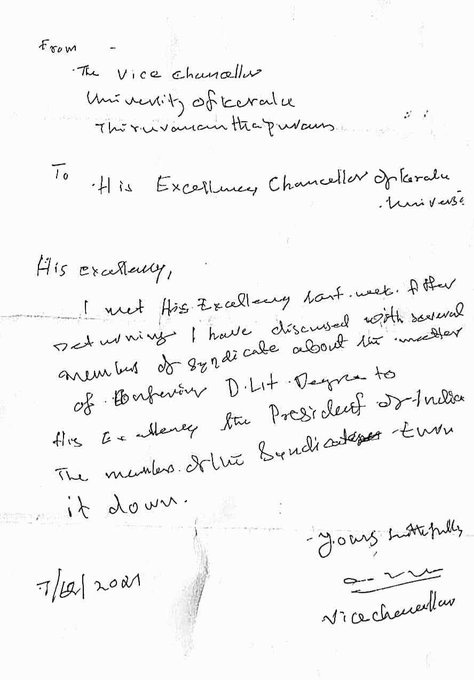 From -
The Vice Chancellor
University of Kerala
Thiruvananthapuram
To
His Excellency Chancellor of Kerala
Universi
His excellency,
I met His Excellency last week. After
returning I have discussed with several
members of syndicate about the matter
of conferring D.Lit Degree to
His Excellency the President of India
The members of the Syndicate turn
it down.
Yours faithfully
7/12/2021
Vice chancellor